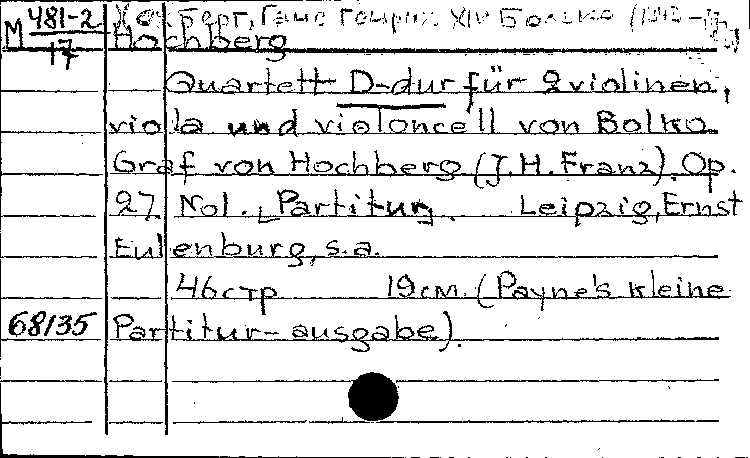 М 481-2
17
Хохберг, Ганс Генрих XIV Болько
Hochberg
Quartett D-dur für 2 violinen,
viola und violoncell von Bolko
Graf von Hochberg (J.H.Franz). Op.
27 No1. Partitur. Leipzig, Ernst
Eulenburg, s.a.
46 стр 19 см. (Payne's kleine
68135 Partitur-ausgabe).